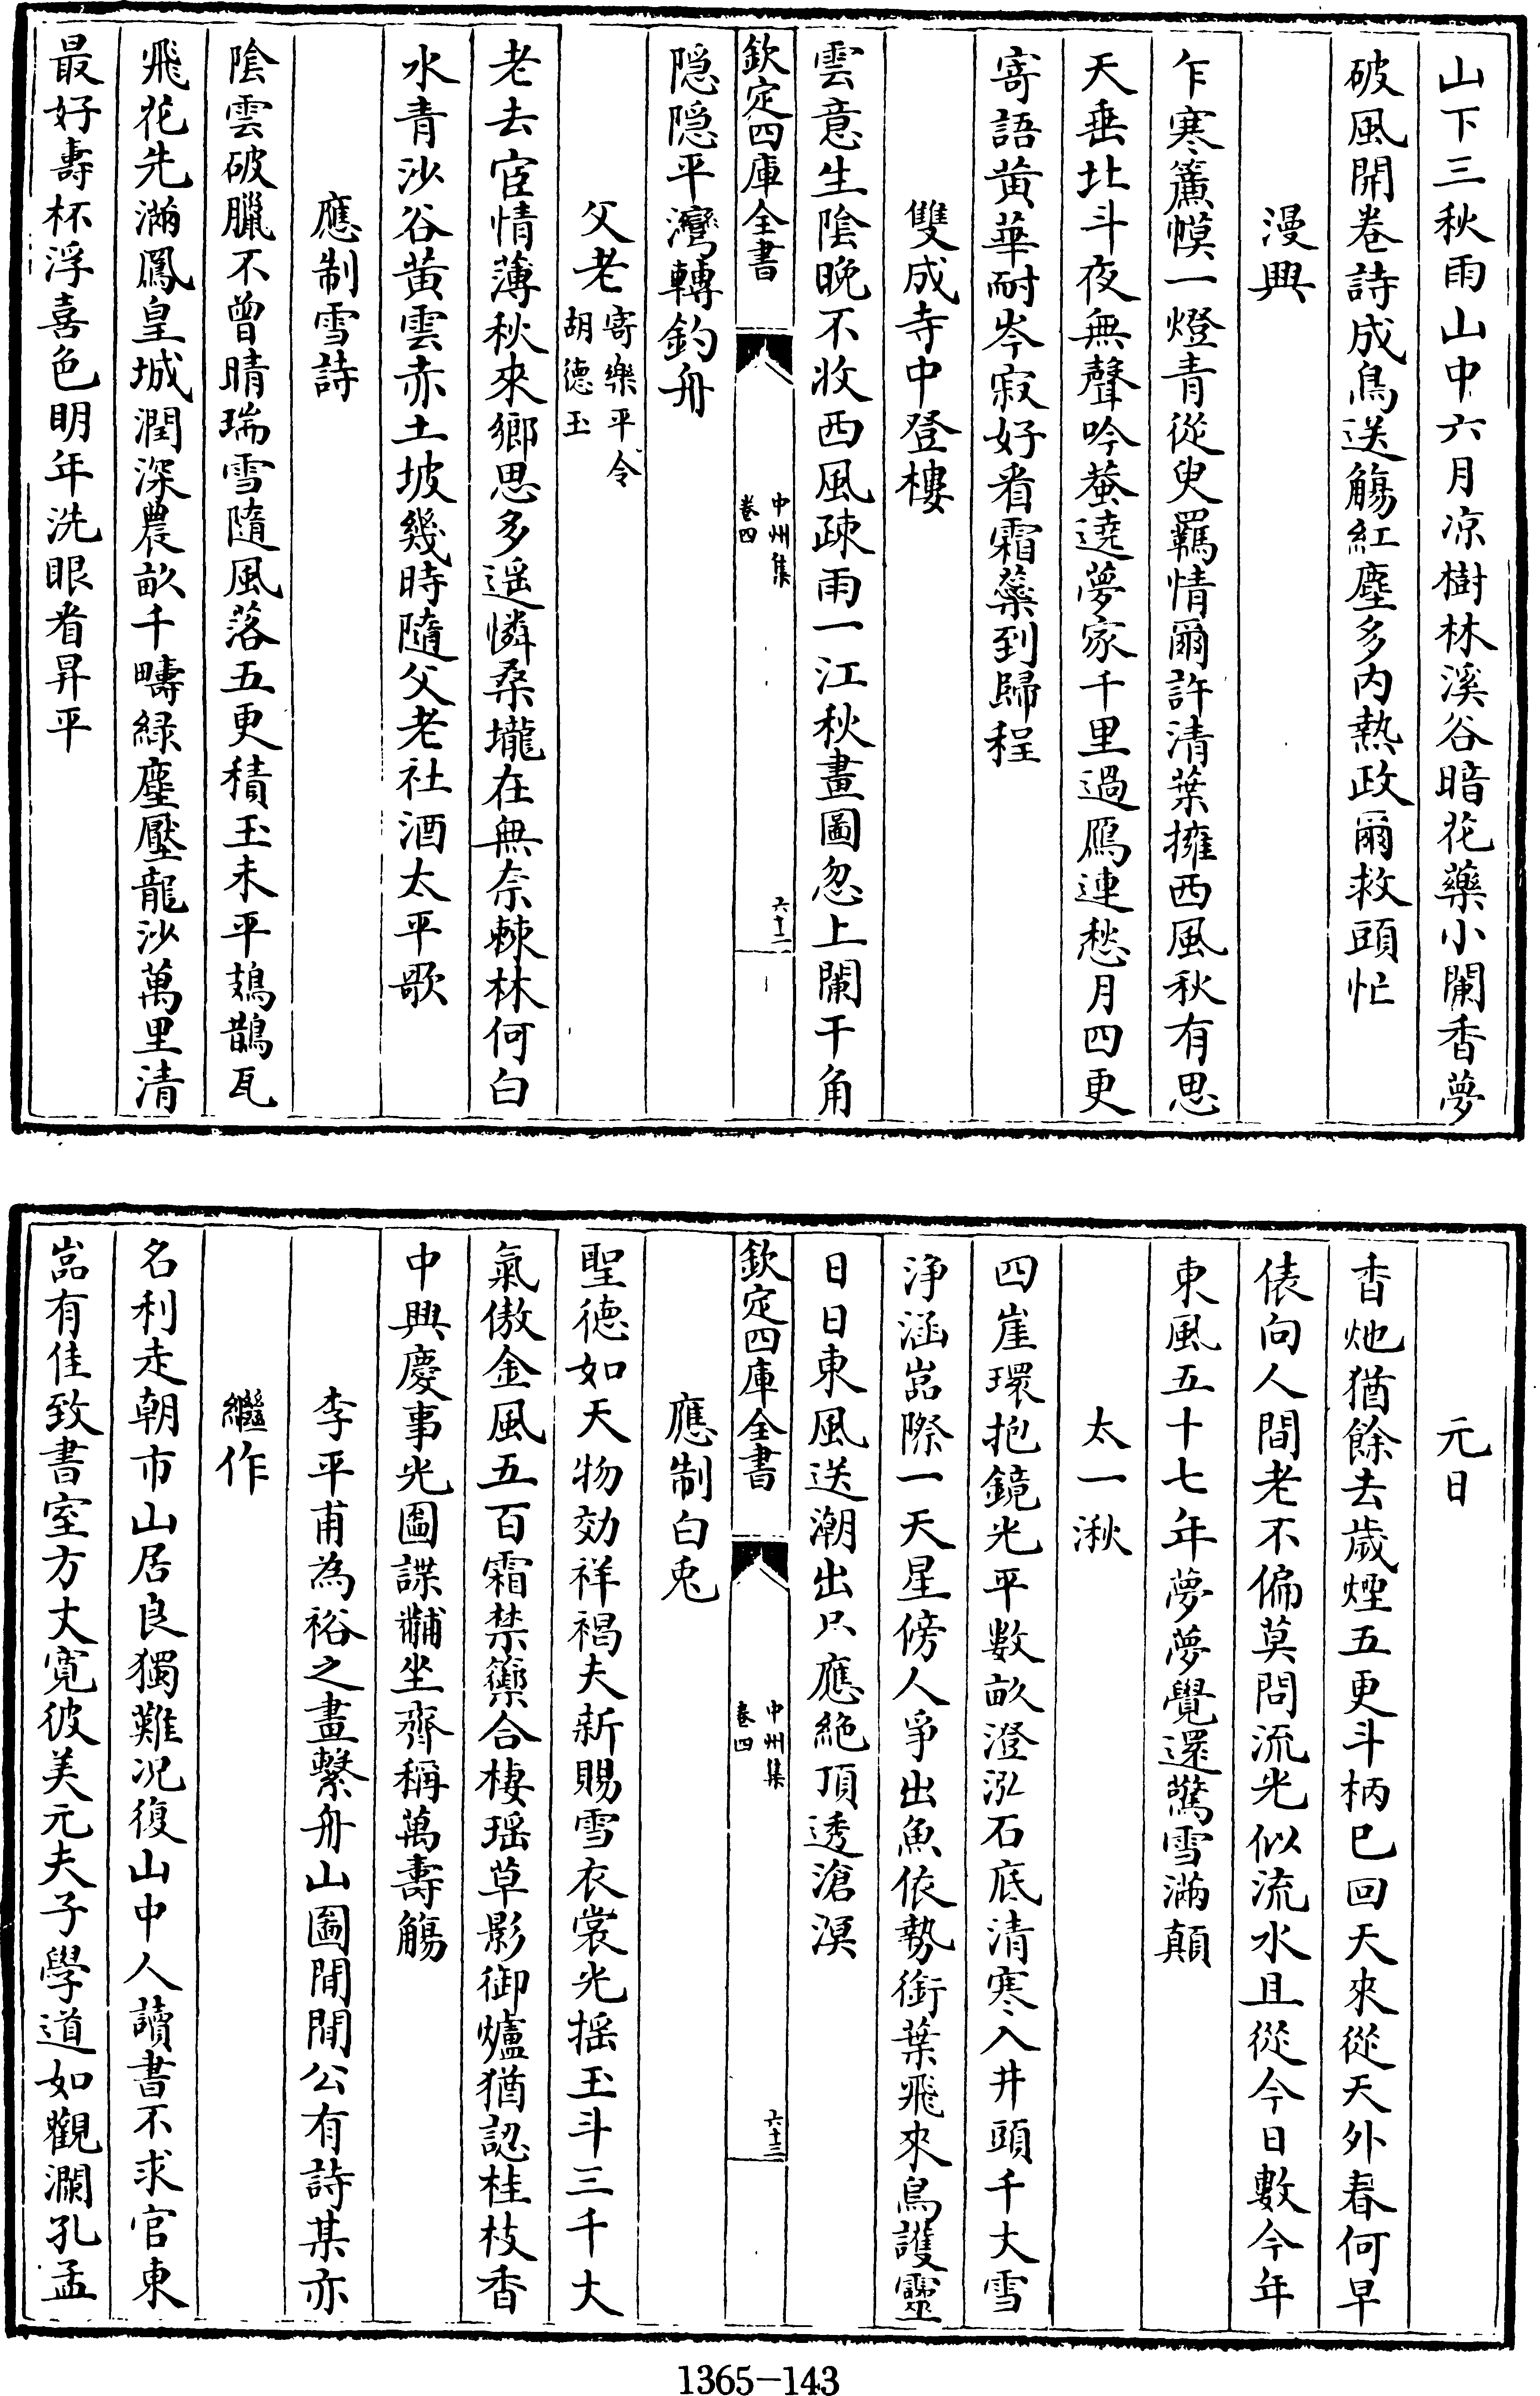 山下三秋雨山中六月凉樹林溪谷暗花藥小闌香夢
破風開卷詩成鳥送觴紅塵多内熱政爾救頭忙
漫興
乍寒簾幙一燈青從臾羇情爾許清葉擁西風秋有思
天垂北斗夜無聲吟蛩遶夢家千里過鴈連愁月四更
寄語黄華耐岑寂好看霜蘂到歸程
雙成寺中登樓
雲意生陰晩不收西風疎雨一江秋畫圖忽上闌干角
欽定四庫全書
中州集
卷四
六十二
隠隠平灣轉釣舟
父老寄樂平令胡德玉
老去宦情薄秋來鄉思多遥憐桑壠在無奈棘林何白
水青沙谷黄雲赤土坡幾時隨父老社酒太平歌
應制雪詩
陰雲破臘不曾晴瑞雪隨風落五更積玉未平鳷鵲瓦
飛花先滿鳳皇城潤深農畝千疇緑塵壓龍沙萬里清
最好壽杯浮喜色明年洗眼看昇平
元日
香灺猶餘去歲煙五更斗柄已回天來從天外春何早
俵向人間老不偏莫問流光似流水且從今日數今年
東風五十七年夢夢覺還驚雪滿顛
太一湫
四崖環抱鏡光平數畝澄泓石底清寒入井頭千大雪
浄涵嵓際一天星傍人爭出魚依勢銜葉飛來鳥護靈
日日東風送潮出只應絶頂透滄溟
欽定四庫全書
中州集
卷四
六十三
應制白兎
聖德如天物効祥褐夫新賜雪衣裳光揺玉斗三千大
氣傲金風五百霜禁籞合棲瑶草影御爐猶認桂枝香
中興慶事光圖諜黼坐齊稱萬壽觴
李平甫為裕之畫繫舟山圖閒閒公有詩某亦
繼作
名利走朝市山居良獨難况復山中人讀書不求官東
嵓有佳致書室方丈寛彼美元夫子學道如觀瀾孔孟
1365-143